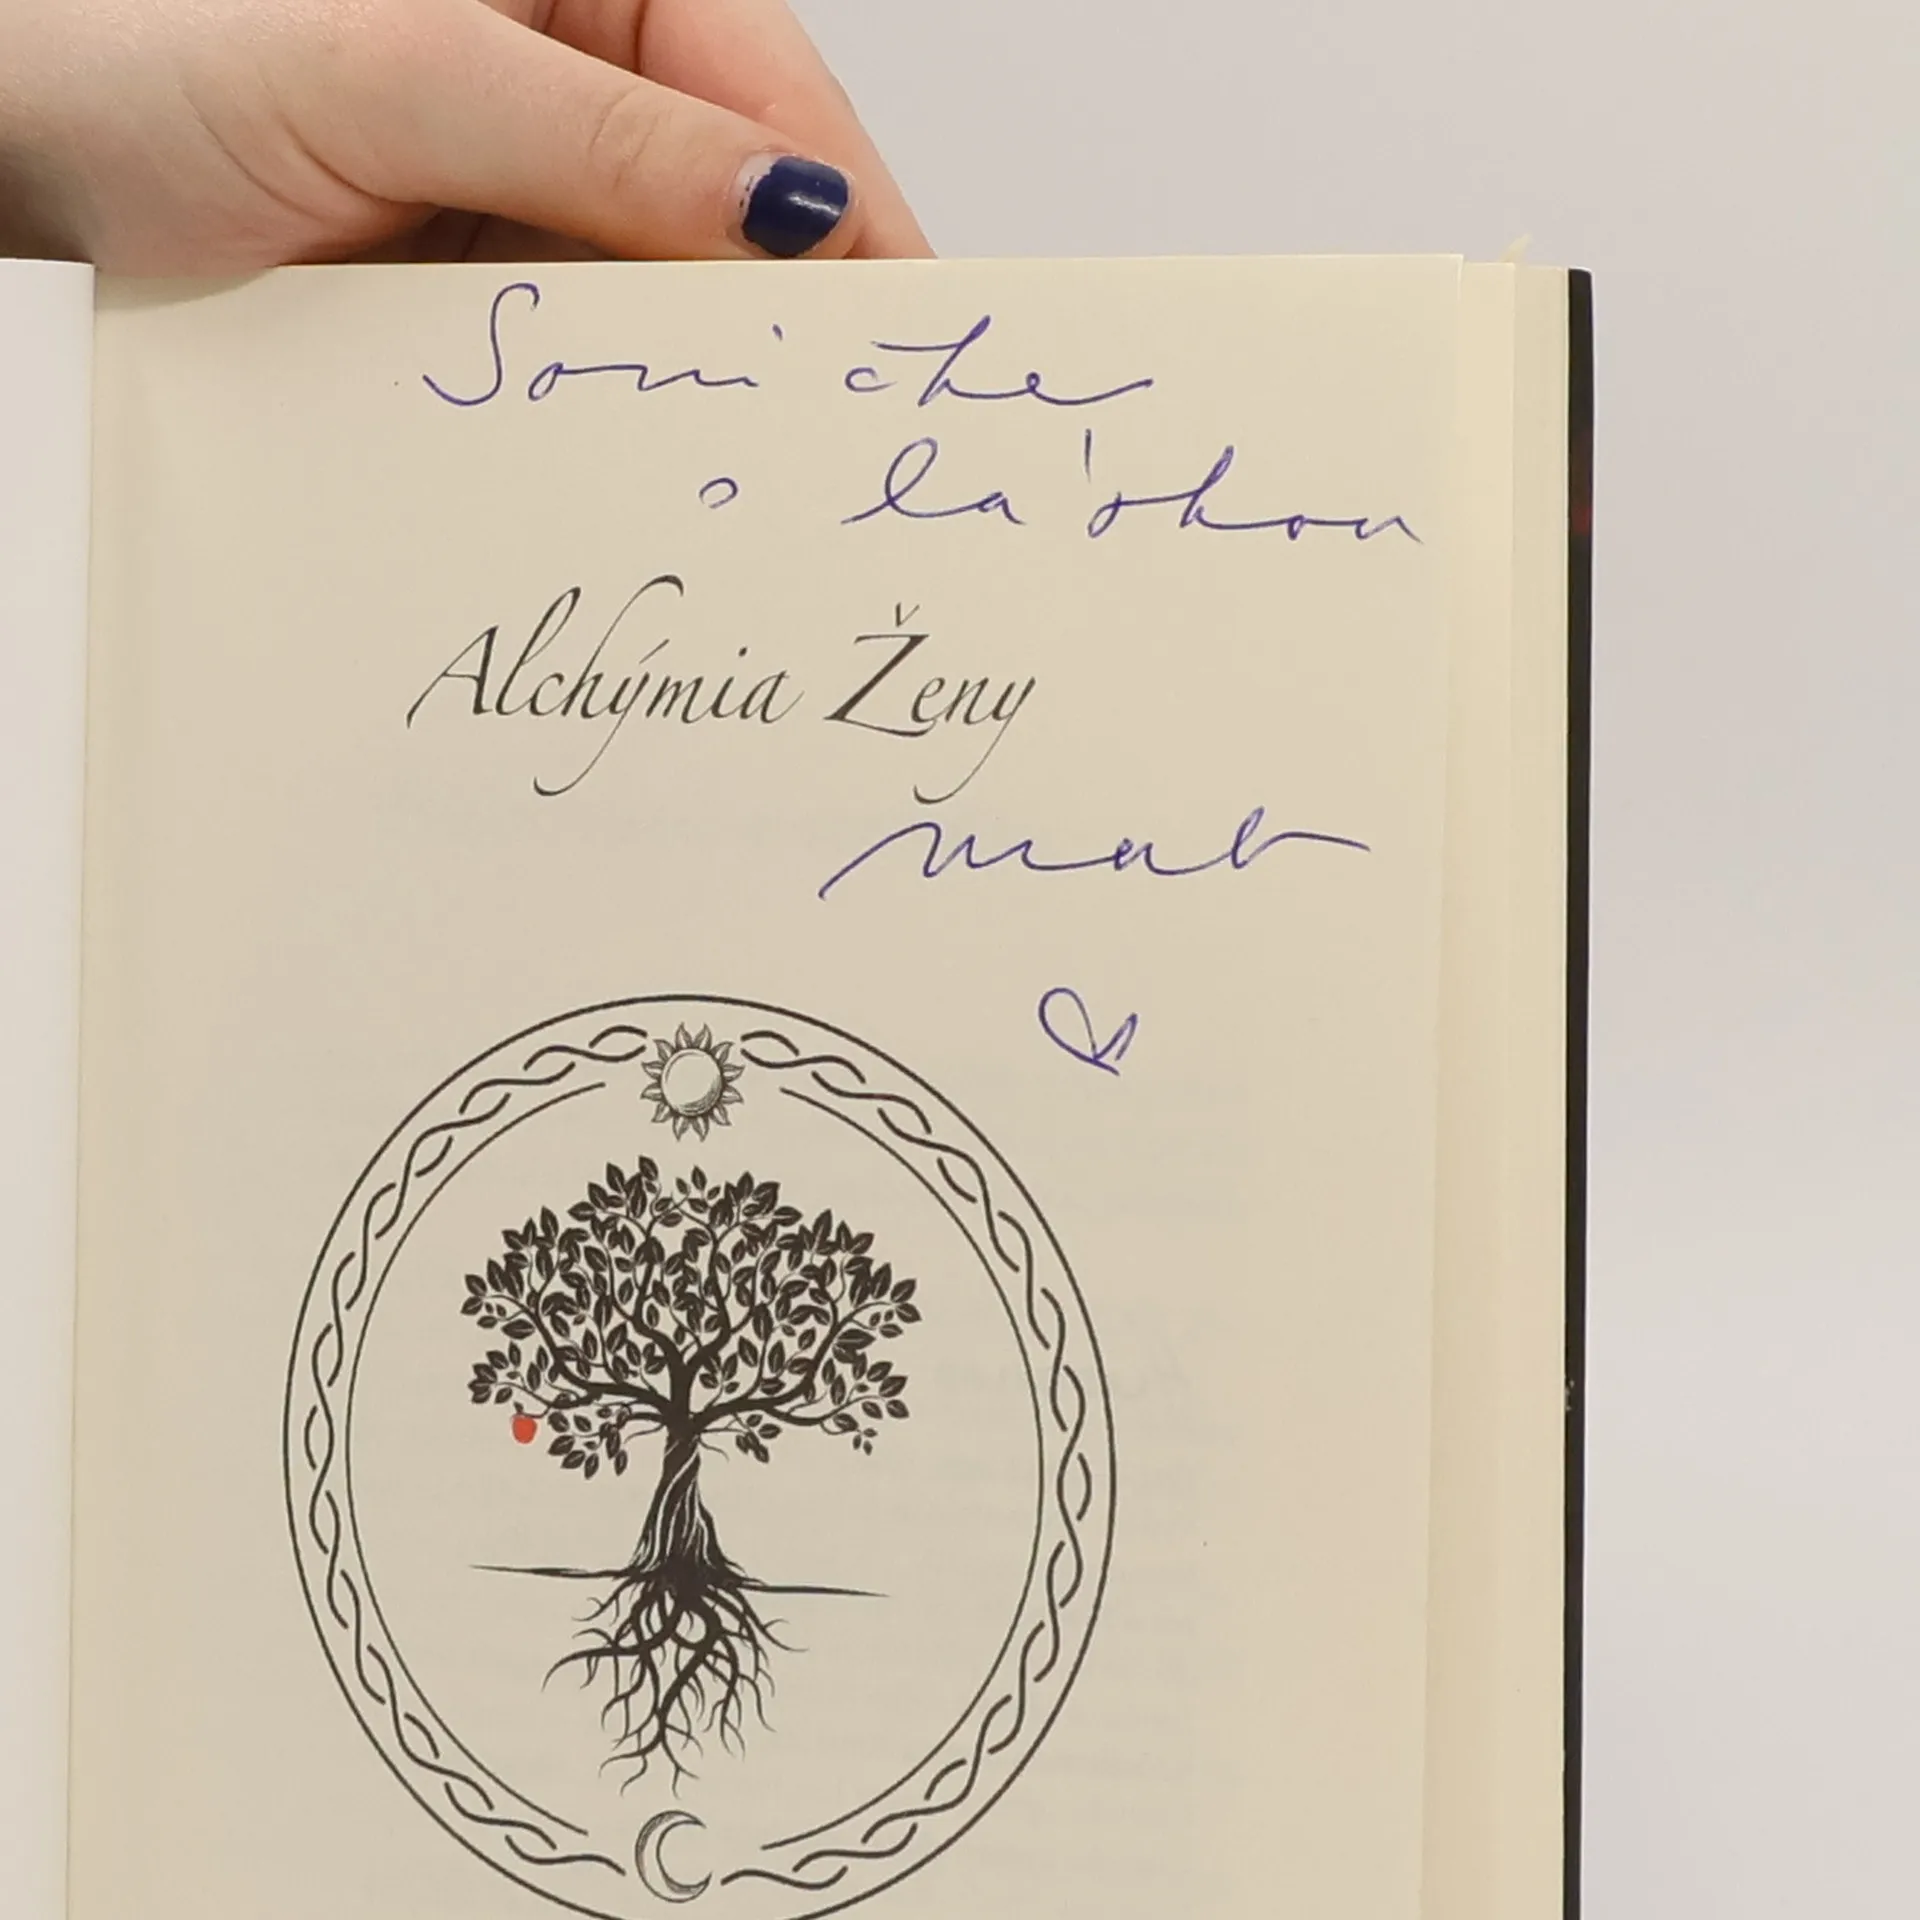 Soničke
s láskou
Alchýmia Ženy